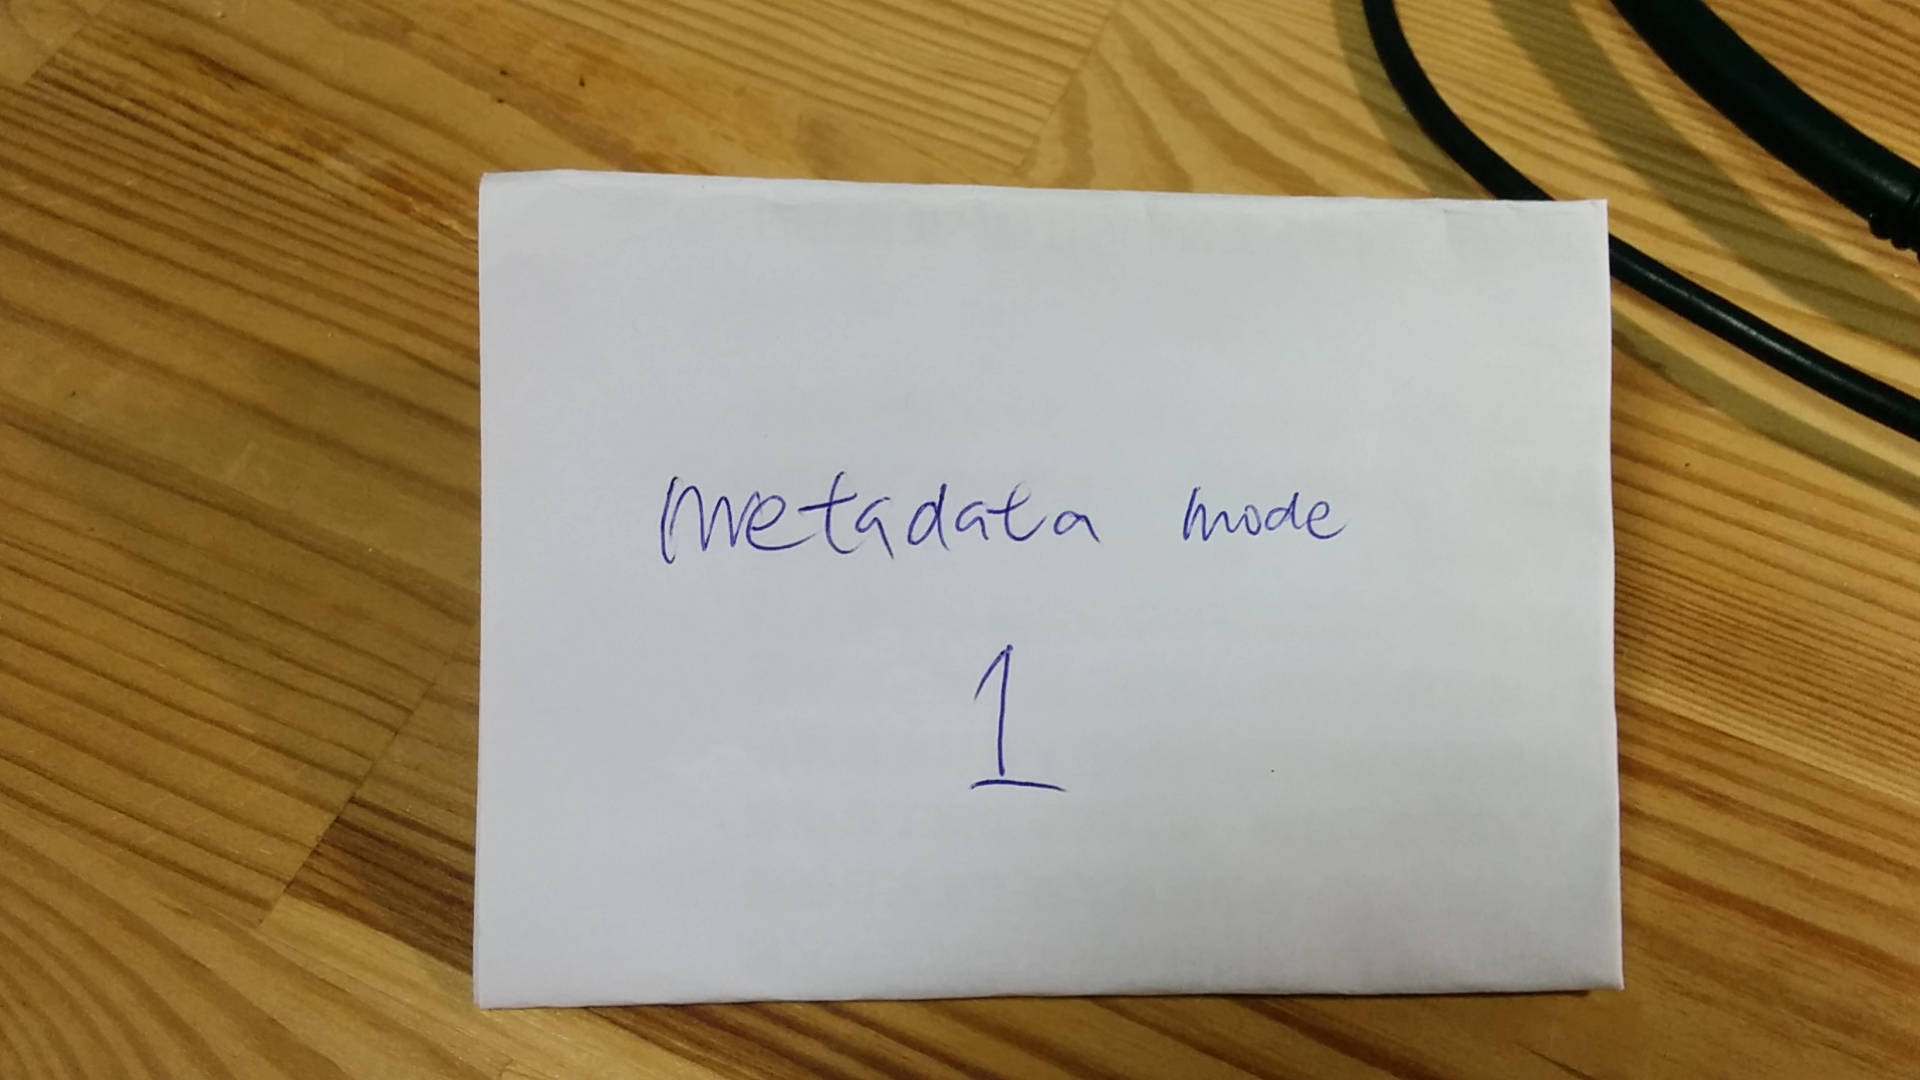 metadata mode
1